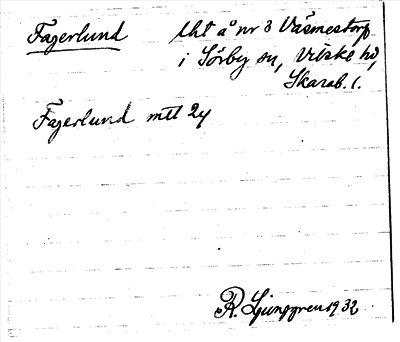 Fagerlund Uht å nr 3 Väsmestorp
i Sörby sn, Vilske hd,
Skarab. l.
Fagerlund mtl 2y
R. Ljunggren 1932